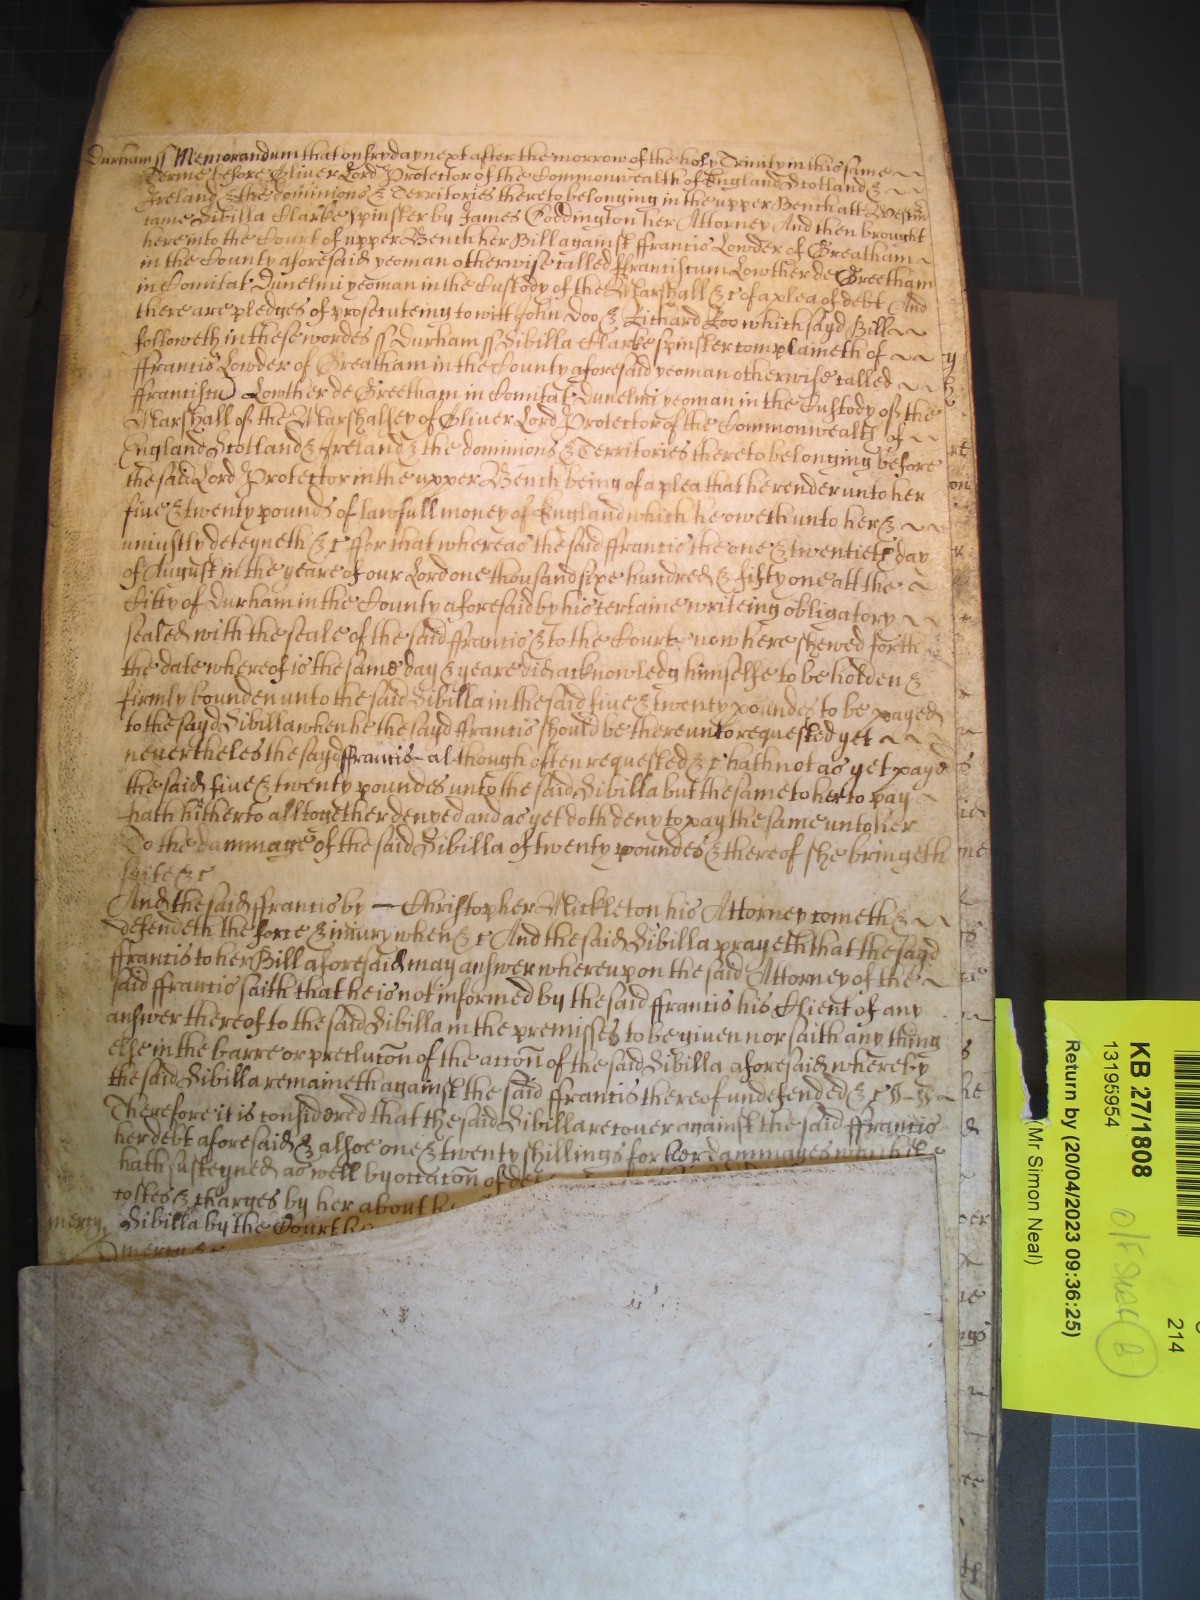 Durham ss Memorandum that on fryday next after the morrow of the holy Trinity in this same
Terme before Oliver Lord Protector of the Commonwealth of England Scotland &
Ireland & the dominions & Territories thereto belonging in the upper Bench att Westm
came Sibilla Clarke spinster by James Coddington her Attorney And then brought
here into the Court of upper Bench her Bill against ffrancis Lowder of Greatham
in the County aforesaid yeoman otherwise called ffranciscum Lowther de Greetham
in Comitat Dunelmi yeoman in the Custody of the Marshall &c of a plea of debt And
there are pledges of prosecuteing to witt John Doo & Richard Roo which sayd Bill
followeth in these wordes ss Durham ss Sibilla Clarke spinster complaineth of
ffrancis Lowder of Greatham in the County aforesaid yeoman otherwise called
ffranciscu Lowther de Greetham in Comitat Dunelmi yeoman in the Custody of the
Marshall of the Marshalsey of Oliver Lord Protector of the Commonwealth of
England Scotland & Ireland & the dominions & Territories thereto belonging before
the said Lord Protector in the upper Bench being of a plea that he render unto her
five & twenty pounds of lawfull money of England which he oweth unto her &
uniustly deteyneth &c ffor that whereas the said ffrancis the one & twentieth day
of August in the yeare of our Lord one thousand sixe hundred & fifty one att the
Citty of Durham in the County aforesaid by his certaine writeing obligatory
sealed with the seale of the said ffrancis & to the Court now here shewed forth
the date whereof is the same day & yeare did acknowledg himselfe to be holden &
firmly bounden unto the said Sibilla in the said five & twenty poundes to be payed
to the sayd Sibilla when he the sayd ffrancis should be thereunto requested yet
nevertheles the sayd ffrancis although often requested &c hath not as yet payd
the said five & twenty poundes unto the said Sibilla but the same to her to pay
hath hitherto alltogether denyed and as yet doth deny to pay the same unto her
To the dammage of the said Sibilla of twenty poundes & thereof she bringeth
suite &c
And the said ffrancis by — Christopher Mickleton his Attorney cometh &
defendeth the force & iniury when &c And the said Sibilla prayeth that the sayd
ffrancis to her Bill aforesaid may answer whereupon the said Attorney of the
said ffrancis saith that he is not informed by the said ffrancis his Client of any
answer thereof to the said Sibilla in the premisses to be given nor saith any thing
else in the barre or preclucon of the accon of the said Sibilla aforesaid whereby
the said Sibilla remaineth against the said ffrancis thereof undefended &c
Therefore it is considered that the said Sibilla recover against the said ffrancis
her debt aforesaid & alsoe one & twenty shillings for her dammages which
hath susteyned as well by occacon of
costes & charges by her about
mercy. Sibilla by the Court
mercy &c
KB 27/1808
13195954
Return by (20/04/2023 09:36:25)
(Mr Simon Neal)
214
B